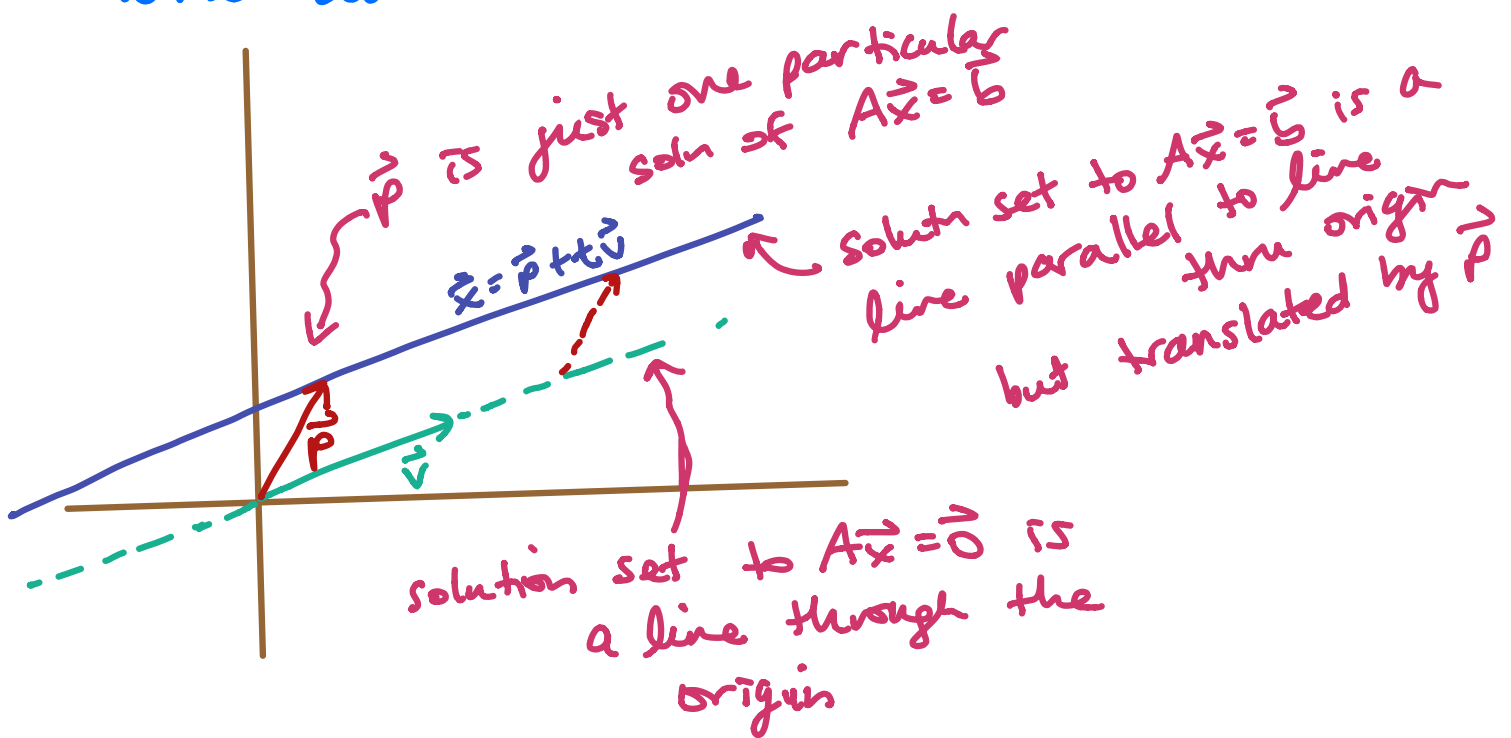 p⃗ is just one particular
soln of Ax⃗ = b⃗
x⃗ = p⃗ + tv⃗
solutn set to Ax⃗ = b⃗ is a
line parallel to line
thru origin
but translated by p⃗
p⃗
v⃗
solution set to Ax⃗ = 0⃗ is
a line through the
origin